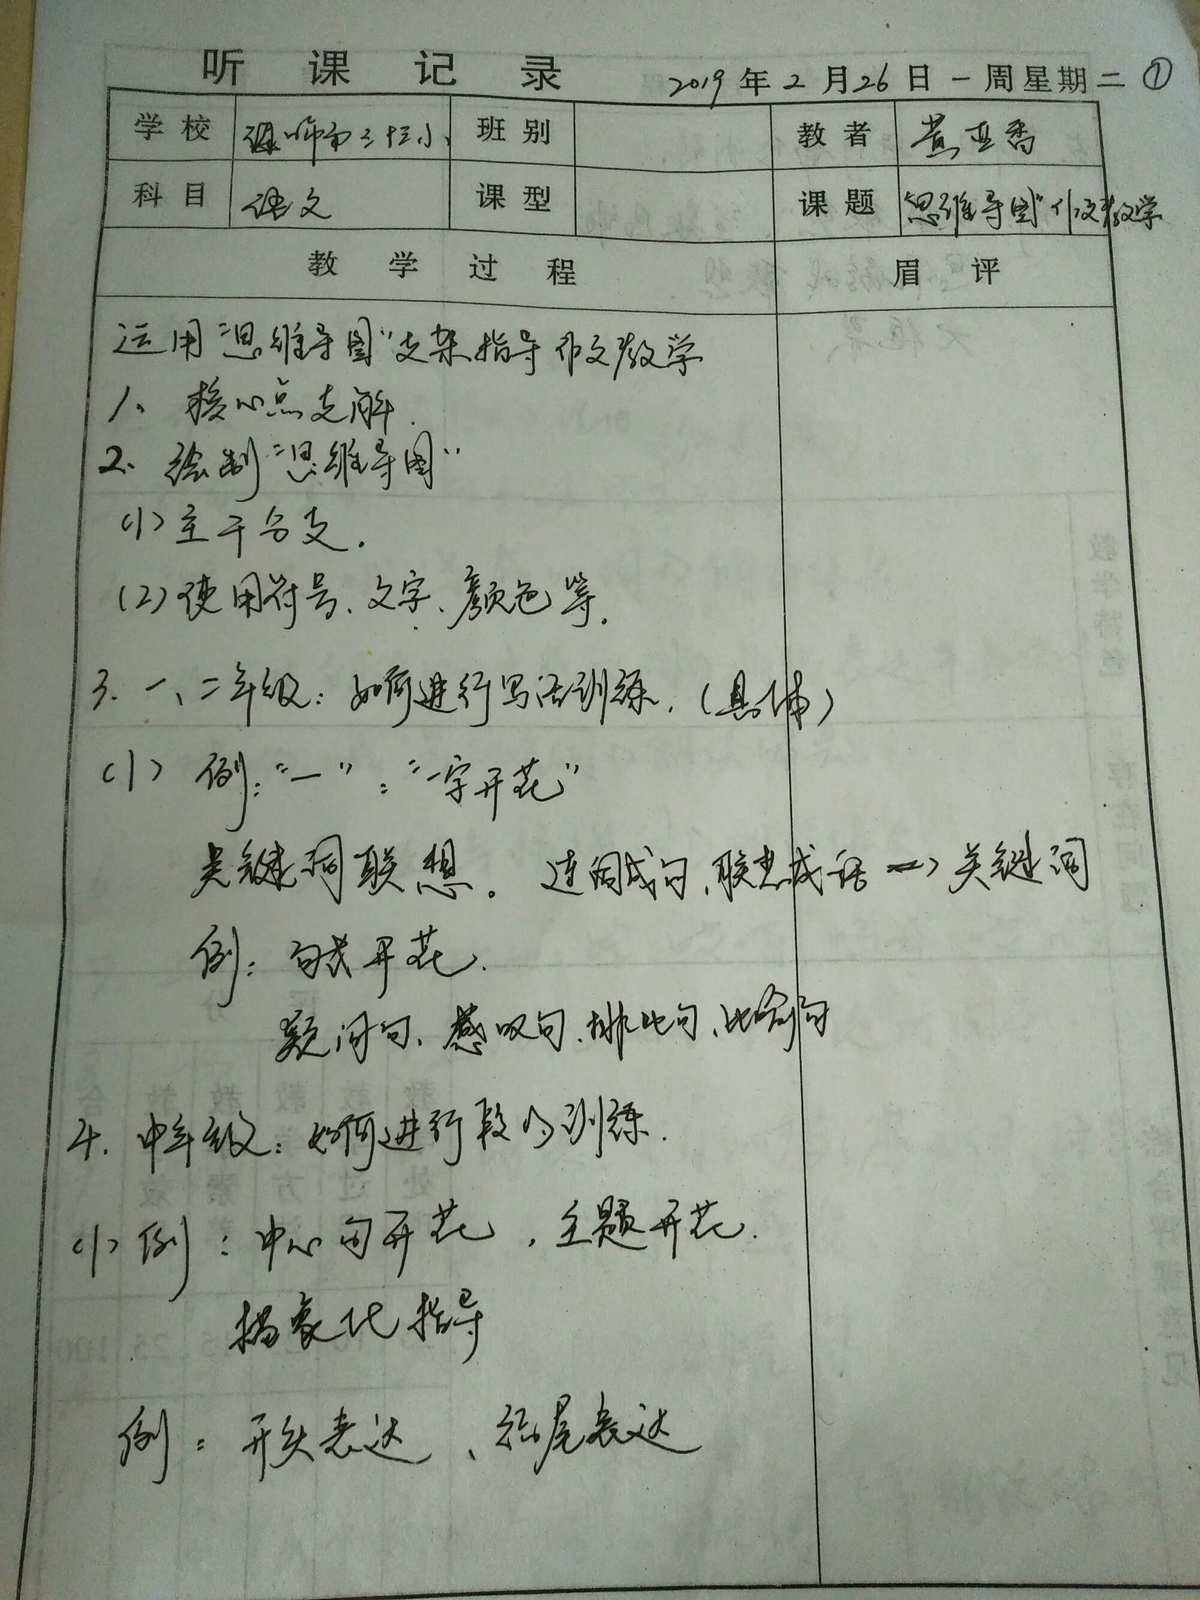 听课记录 2019年2月26日一周星期二 ①
学校 班别 教者 黄亚香
科目 语文 课型 课题 "思维导图"作文教学
教学过程 眉评
运用"思维导图"支架指导作文教学
1、核心点支解.
2、绘制"思维导图"
(1)主干分支.
(2)使用符号、文字、颜色等.
3.一、二年级:如何进行写话训练.(具体)
(1)例:"一":"一字开花"
关键词联想。连词成句、联想成话 → 关键词
例:句式开花.
疑问句、感叹句、排比句、比喻句
4.中年级:如何进行段的训练.
(1)例:中心句开花,主题开花.
象化指导
例:开头表达、结尾表达